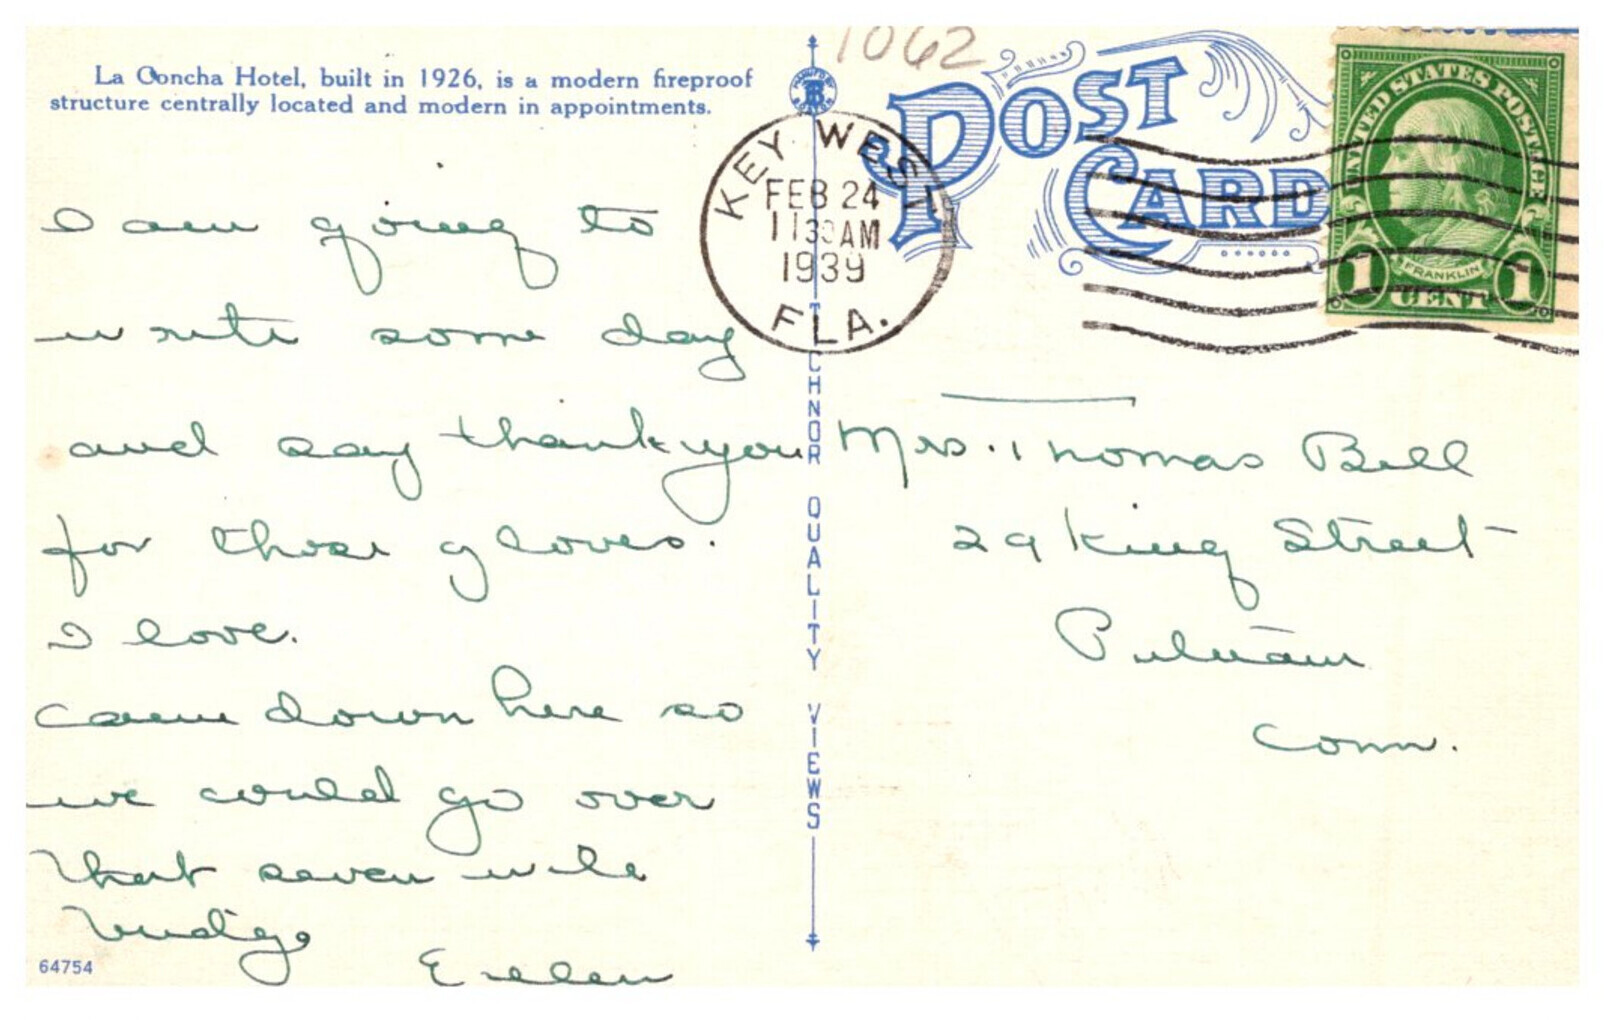 La Concha Hotel, built in 1926, is a modern fireproof
structure centrally located and modern in appointments.
I am going to
write some day
and say thank you
for those gloves.
I love.
Came down here so
we could go over
that seven mile
bridge
Ellen
64754
1062
POST
CARD
KEY WEST
FEB 24
1130AM
1939
FLA.
UNITED STATES POSTAGE
FRANKLIN
1 CENT 1
TECHNOR QUALITY VIEWS
Mrs. Thomas Bell
29 King Street
Putnam
Conn.